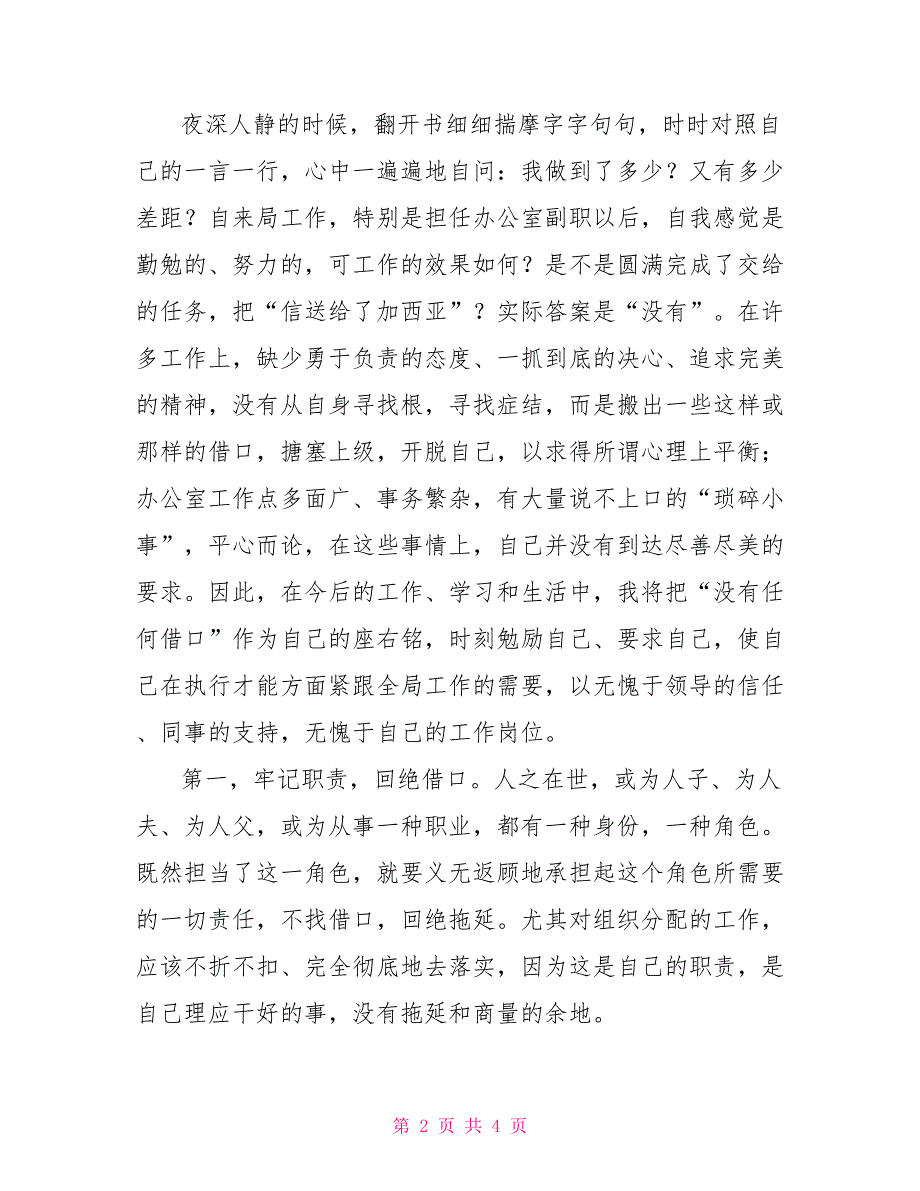 夜深人静的时候，翻开书细细揣摩字字句句，时时对照自
己的一言一行，心中一遍遍地自问：我做到了多少？又有多少
差距？自来局工作，特别是担任办公室副职以后，自我感觉是
勤勉的、努力的，可工作的效果如何？是不是圆满完成了交给
的任务，把“信送给了加西亚”？实际答案是“没有”。在许
多工作上，缺少勇于负责的态度、一抓到底的决心、追求完美
的精神，没有从自身寻找根，寻找症结，而是搬出一些这样或
那样的借口，搪塞上级，开脱自己，以求得所谓心理上平衡；
办公室工作点多面广、事务繁杂，有大量说不上口的“琐碎小
事”，平心而论，在这些事情上，自己并没有到达尽善尽美的
要求。因此，在今后的工作、学习和生活中，我将把“没有任
何借口”作为自己的座右铭，时刻勉励自己、要求自己，使自
己在执行才能方面紧跟全局工作的需要，以无愧于领导的信任
、同事的支持，无愧于自己的工作岗位。
第一，牢记职责，回绝借口。人之在世，或为人子、为人
夫、为人父，或为从事一种职业，都有一种身份，一种角色。
既然担当了这一角色，就要义无返顾地承担起这个角色所需要
的一切责任，不找借口，回绝拖延。尤其对组织分配的工作，
应该不折不扣、完全彻底地去落实，因为这是自己的职责，是
自己理应干好的事，没有拖延和商量的余地。
第 2 页 共 4 页